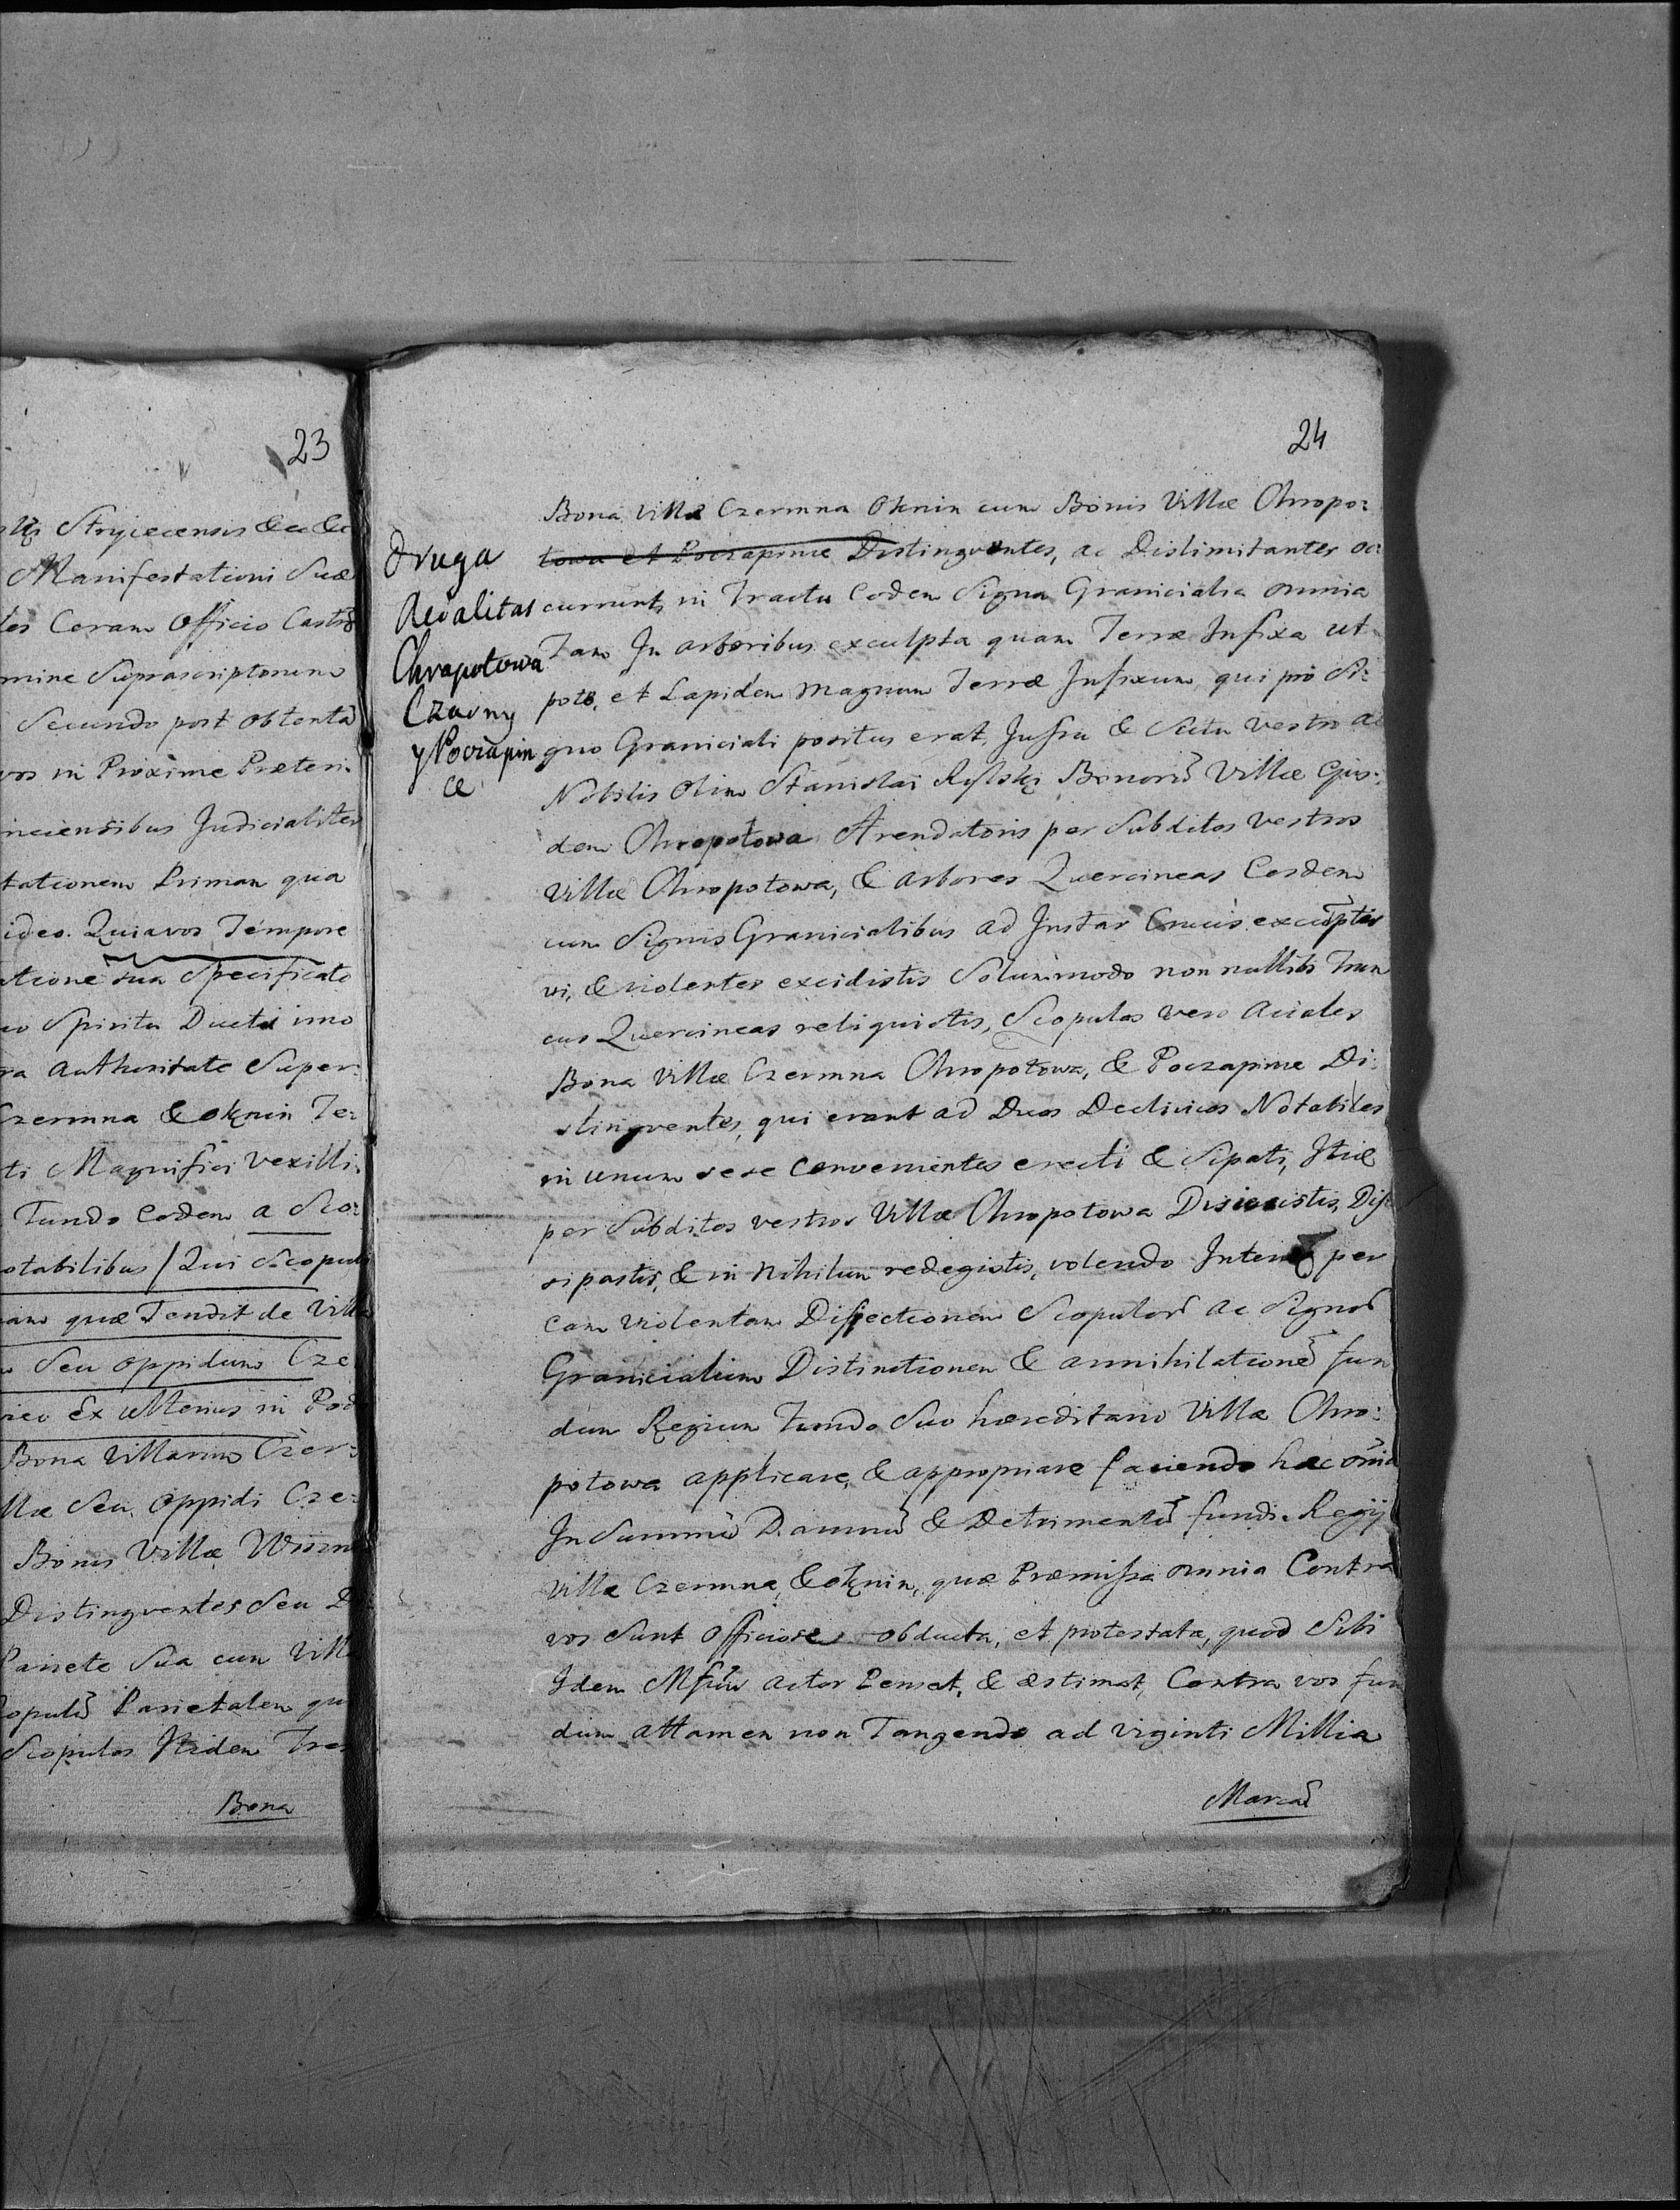 23
Stryiecensis &c &c
Manifestationi Suæ
Coram Officio Castr
Suprascriptorum
Secundo post obtenta
vos in Proxime Præteri:
Judicialiter
tationem Primam qua
ideo. Quia vos Tempore
sua Specificato
Spiritu Ducti imo
ra Authoritate Super:
Czermna & oknin Te:
ti Magnifici Vexilli:
Fundo Eodem a Sco:
otabilibus / Qui Scopuli
quæ Tendit de Villa
Seu oppidum Cze
Ex ulterius in Pod
Bona Villarum Czer:
llæ Seu oppidi Cze:
Bonis Villæ
Distingventes Seu D
Pariete Sua cum Villa
opulũ Parietalem qu
Scopulos Itidem Tres
Bona
24
Druga
Acialitas
Chrapotowa
Czarny
y Poczapin
ce
Bona Villæ Czermna Oknin cum Bonis Villæ Chropo:
towa et Poczapince Distingventes, ac Dislimitantes oc:
currunt, in Tractu Eodem Signa Granicialia omnia
Tam In arboribus exculpta quam Terræ Infixa ut
pote, et Lapidem magnum Terræ Infixum, qui pro Si:
gno Graniciali positus erat, Jussu & Scitu vestro ac
Nobilis olim Stanislai Bonorũ Villæ Ejus:
dem Chropotowa Arendatoris per Subditos vestros
Villæ Chropotowa, & arbores Quercineas Eosdem
cum Signis Granicialibus ad Instar Crucis exculptis
vi, & violenter excidistis Solummodo non nullibi Trun
cus Quercineas reliquistis, Scopulos vero Aciales
Bona Villæ Czermna Chropotowa, & Poczapince Di:
stingventes, qui erant ad Duos Declivios Notabiles
in unum sese convenientes erecti & Sipati, Itid
per Subditos vestros Villæ Chropotowa Disiecistis, Diß:
sipastis, & in Nihilum redegistis, volendo per
eam violentam Dißiectionem Scopulorũ ac Signorũ
Granicialium Distinctionem & annihilationẽ fun
dum Regium Fundo Suo hæreditario Villæ Chro:
potowa applicare, & appropriare faciendo hæc oĩa
In Summũ Damnũ & Detrimentũ fundi Regij
Villæ Czermna, & oknin, quæ Præmißa omnia Contra
vos Sunt Officiose obducta, et protestata, quod Sibi
Idem Actor Pensat, & æstimat, Contra vos fun
dum attamen non Tangendo ad viginti Millia
Marcarũ